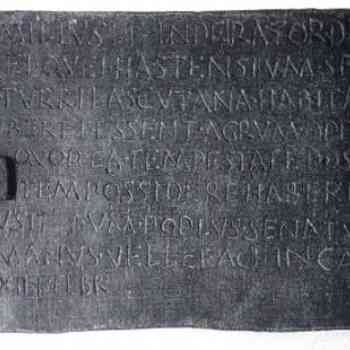 MILIVS·L·F·INPEIRATOR·D
EI·QVEI·HASTENSIVM·SE
TVRRI·LASCVTANA·HABITA
BEREI·ESSENT·AGRVM·OPI
QVOD·EA·TEMPESTATE·POS
ITEM·POSSIDERE·HABERE
VSIT·DVM·POPLVS·SENATV
MANVS·VELLET·ACT·IN·CA
XII·K·FEBR